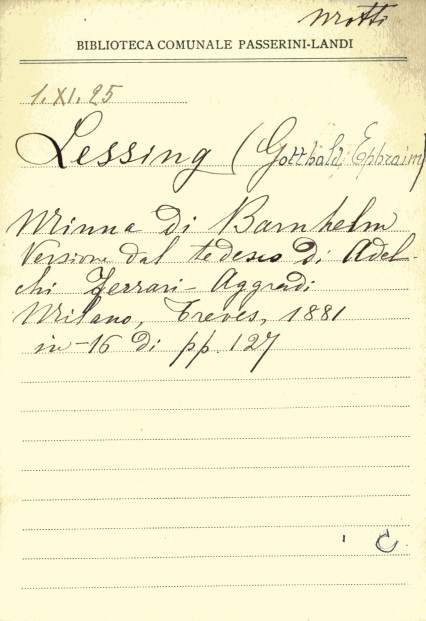 Mrotti
BIBLIOTECA COMUNALE PASSERINI-LANDI
1.XI.25
Lessing (Gotthold Ephraim)
Minna di Barnhelm
Versione dal tedesco di Adel-
chi Ferrari-Aggradi
Milano, Treves, 1881
in-16 di pp. 127
C